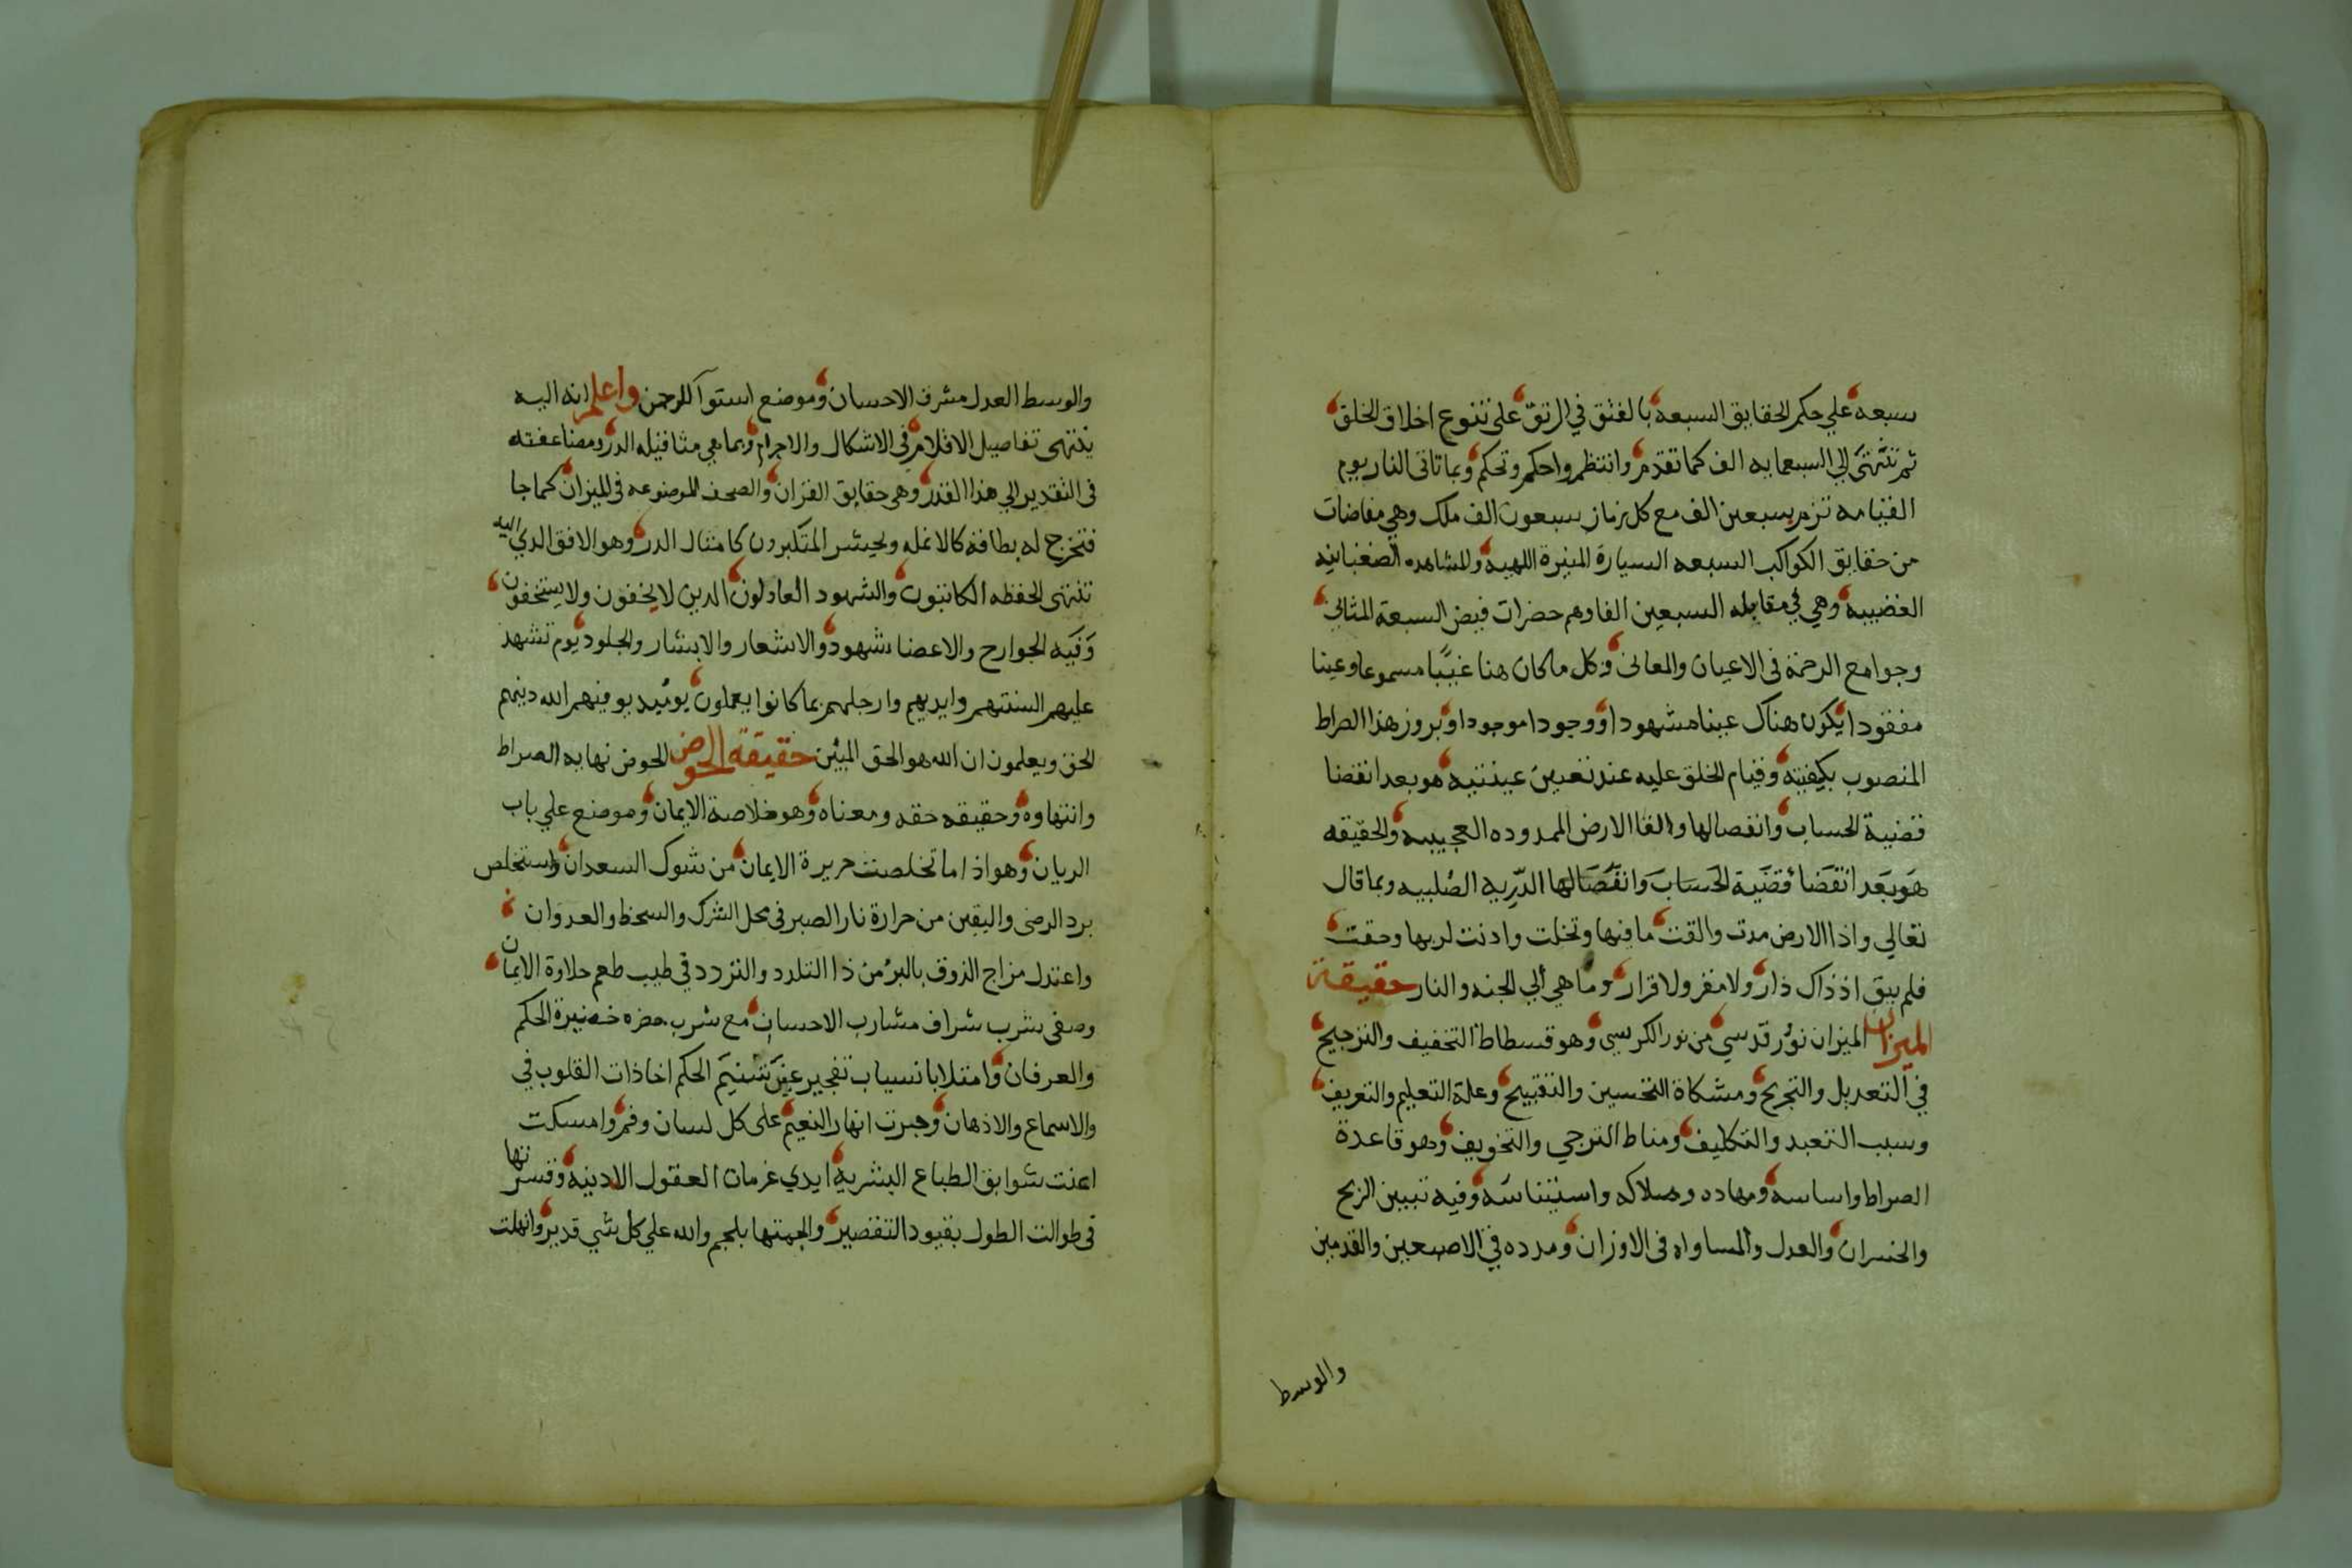 سبعه علي حكم الحقايق السبعه بالفتق في الرتق على تنوع اخلاق الخلق
ثم تنتهى الي السبعمايه الف كما تقدم وانتظم واحكم وتحكم وبما تاتى النار يوم
القيامه تزم بسبعين الف مع كل زمام سبعون الف ملك وهي مفاضات
من حقايق الكواكب السبعه السيارة المنيرة اللهبيه والمشاهده
الغضبيه وهي في مقابله السبعين الفا وهم حضرات فيض السبعة المثاني
وجوامع الرحمة فى الاعيان والمعانى وكل ما كان هنا غيبًا مسموعا وعينا
مفقودا يكون هناك عينا مشهودا ووجودا موجودا وبروز هذا الصراط
المنصوب بكيفيته وقيام الخلق عليه عند تعيين عينيته هو بعد انقضا
قضية الحساب وانفصالها والقا الارض الممدوده العجيبه والحقيقه
هو بعد انقضا قضية الحساب وانفصالها الدرية الصلبيه وبما قال
تعالي واذا الارض مدت والقت ما فيها وتخلت واذنت لربها وحقت
فلم يبق اذ ذاك دار ولا مفر ولا قرار وما هي الي الجنه والنار حقيقة
الميزان الميزان نور قدسي من نور الكرسي وهو قسطاط التخفيف والترجيح
في التعديل والتجريح ومشكاة التحسين والتقبيح وعلة التعليم والتعريف
وسبب التعبد والتكليف ومناط الترجي والتخويف وهو قاعدة
الصراط واساسه ومهاده وملاكه واستيناسه وفيه تبيين الربح
والخسران والعدل والمساواه فى الاوزان ومدده في الاصبعين والقدمين
والوسط
والوسط العدل مشرف الاحسان وموضع استوآ الرحمن واعلم انه اليه
ينتهى تفاصيل الاقلام فى الاشكال والاجرام وبما هي مثاقيله الدر ومضاعفته
فى التقدير الي هذا القدر وهى حقايق القران والصحف الموضوعه فى الميزان كما جا
فتخرج له بطاقة كالانمله ويحشر المتكبرون كامثال الدر وهو الافق الدي اليه
تنتهى الحفظه الكاتبون والشهود العادلون الدين لا يخفون ولا يستخفون
وَفيه الجوارح والاعضا شهود والاشعار والابشار والجلود يوم تشهد
عليهم السنتهم وايديهم وارجلهم بما كانوا يعملون يوميد يوفيهم الله دينهم
الحق ويعلمون ان الله هو الحق المبين حقيقة الحوض الحوض نهايه الصراط
وانتهاوه وحقيقه حقه ومعناه وهو خلاصة الايمان وموضع علي باب
الريان وهو اذا ما تخلصت حريرة الايمان من شوك السعدان واستخلص
برد الرضى واليقين من حرارة نار الصبر فى محل الشرك والسخط والعدوان
واعتدل مزاج الذوق بالبر من ذا التلدد والتردد في طيب طعم حلاوة الايمان
وصفى شرب شراف مشارب الاحسان مع شرب حضره الحكم
والعرفان وامتلا بانسياب تفجير عين تسنيم الحكم اخاذات القلوب في
والاسماع والاذهان وجرت انهار النعيم على كل لسان وفم وامسكت
اعنت سوابق الطباع البشريه ايدي عزمات العقول الادبيه وقسرتها
فى طوالت الطول بقيود التقصير والجمتها بلجم والله علي كل شي قدير وانهلت